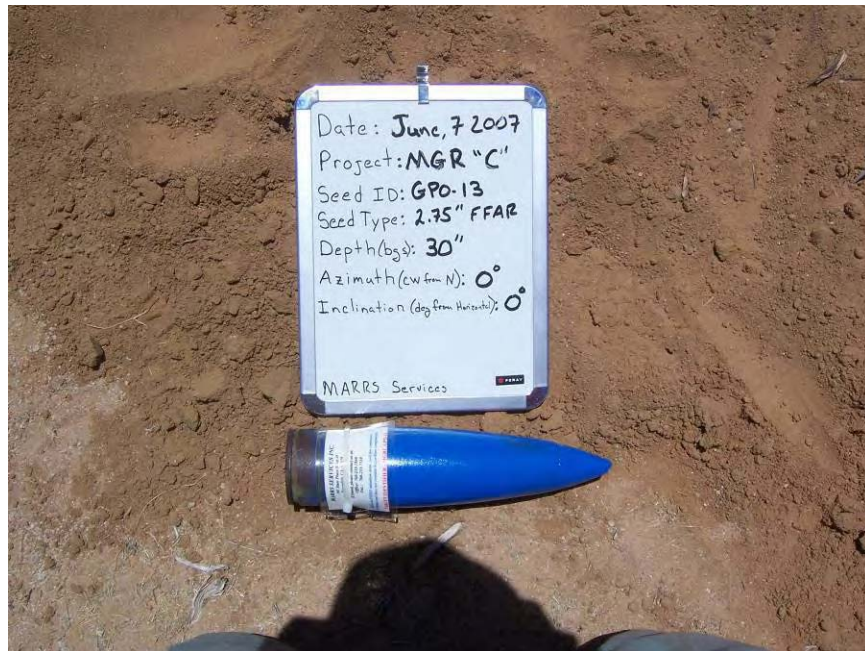 Date: June, 7 2007
Project: MGR "C"
Seed ID: GPO-13
Seed Type: 2.75" FFAR
Depth (bgs): 30"
Azimuth (cw from N): 0°
Inclination (deg from Horizontal): 0°
MARRS Services